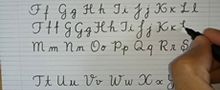 Ff Gg Hh Ii Jj Kk Ll
Ff G Gg Hh Ii Jj Kk L
Mm Nn Oo Pp Qq Rr S
Tt Uu Vv Ww Xx